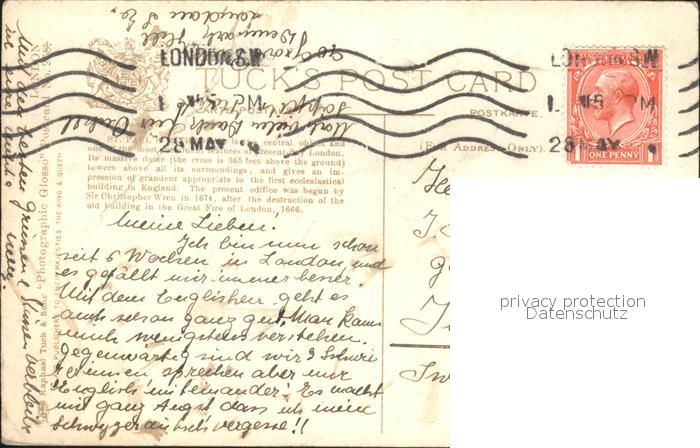 LONDON S.W
1 45 PM
28 MAY
LONDON S.W
1 45 PM
28 MAY
ONE PENNY
TUCK'S POST CARD
POSTKARTE
(FOR ADDRESS ONLY).
LONDON
Raphael Tuck & Sons' "Photographic Glosso" Postcard No.
PUBLISHERS TO THEIR MAJESTIES THE KING & QUEEN
ST. PAUL'S is the central object and
one of the most features of present day London.
Its massive dome (the cross is 365 feet above the ground)
towers above all its surroundings, and gives an im-
pression of grandeur appropriate to the first ecclesiastical
building in England. The present edifice was begun by
Sir Christopher Wren in 1674, after the destruction of the
old building in the Great Fire of London, 1666.
Meine Lieben!
Ich bin nun schon
seit 5 Wochen in London und
es gefällt mir immer besser.
Mit dem Englischen geht es
auch schon ganz gut, Man kann
mich wenigstens verstehen.
Gegenwärtig sind wir 3 Schwei
zerinnen sprechen aber nur
Englisch miteinander! Es macht
mir ganz Angst dass ich mein
Schwyzerdütsch vergesse!!
Mit den besten Grüssen & Küssen verbleibe
Nelly
London
privacy protection
Datenschutz